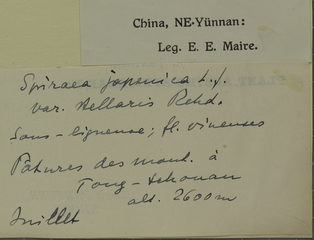 China, NE-Yünnan:
Leg. E. E. Maire.
Spiraea japonica L.f.
var. stellaris Rehd.
Sous-ligneuse; fl. vineuses
Pâtures des mont. à
Tong-tchouan
alt. 2600 m
Juillet